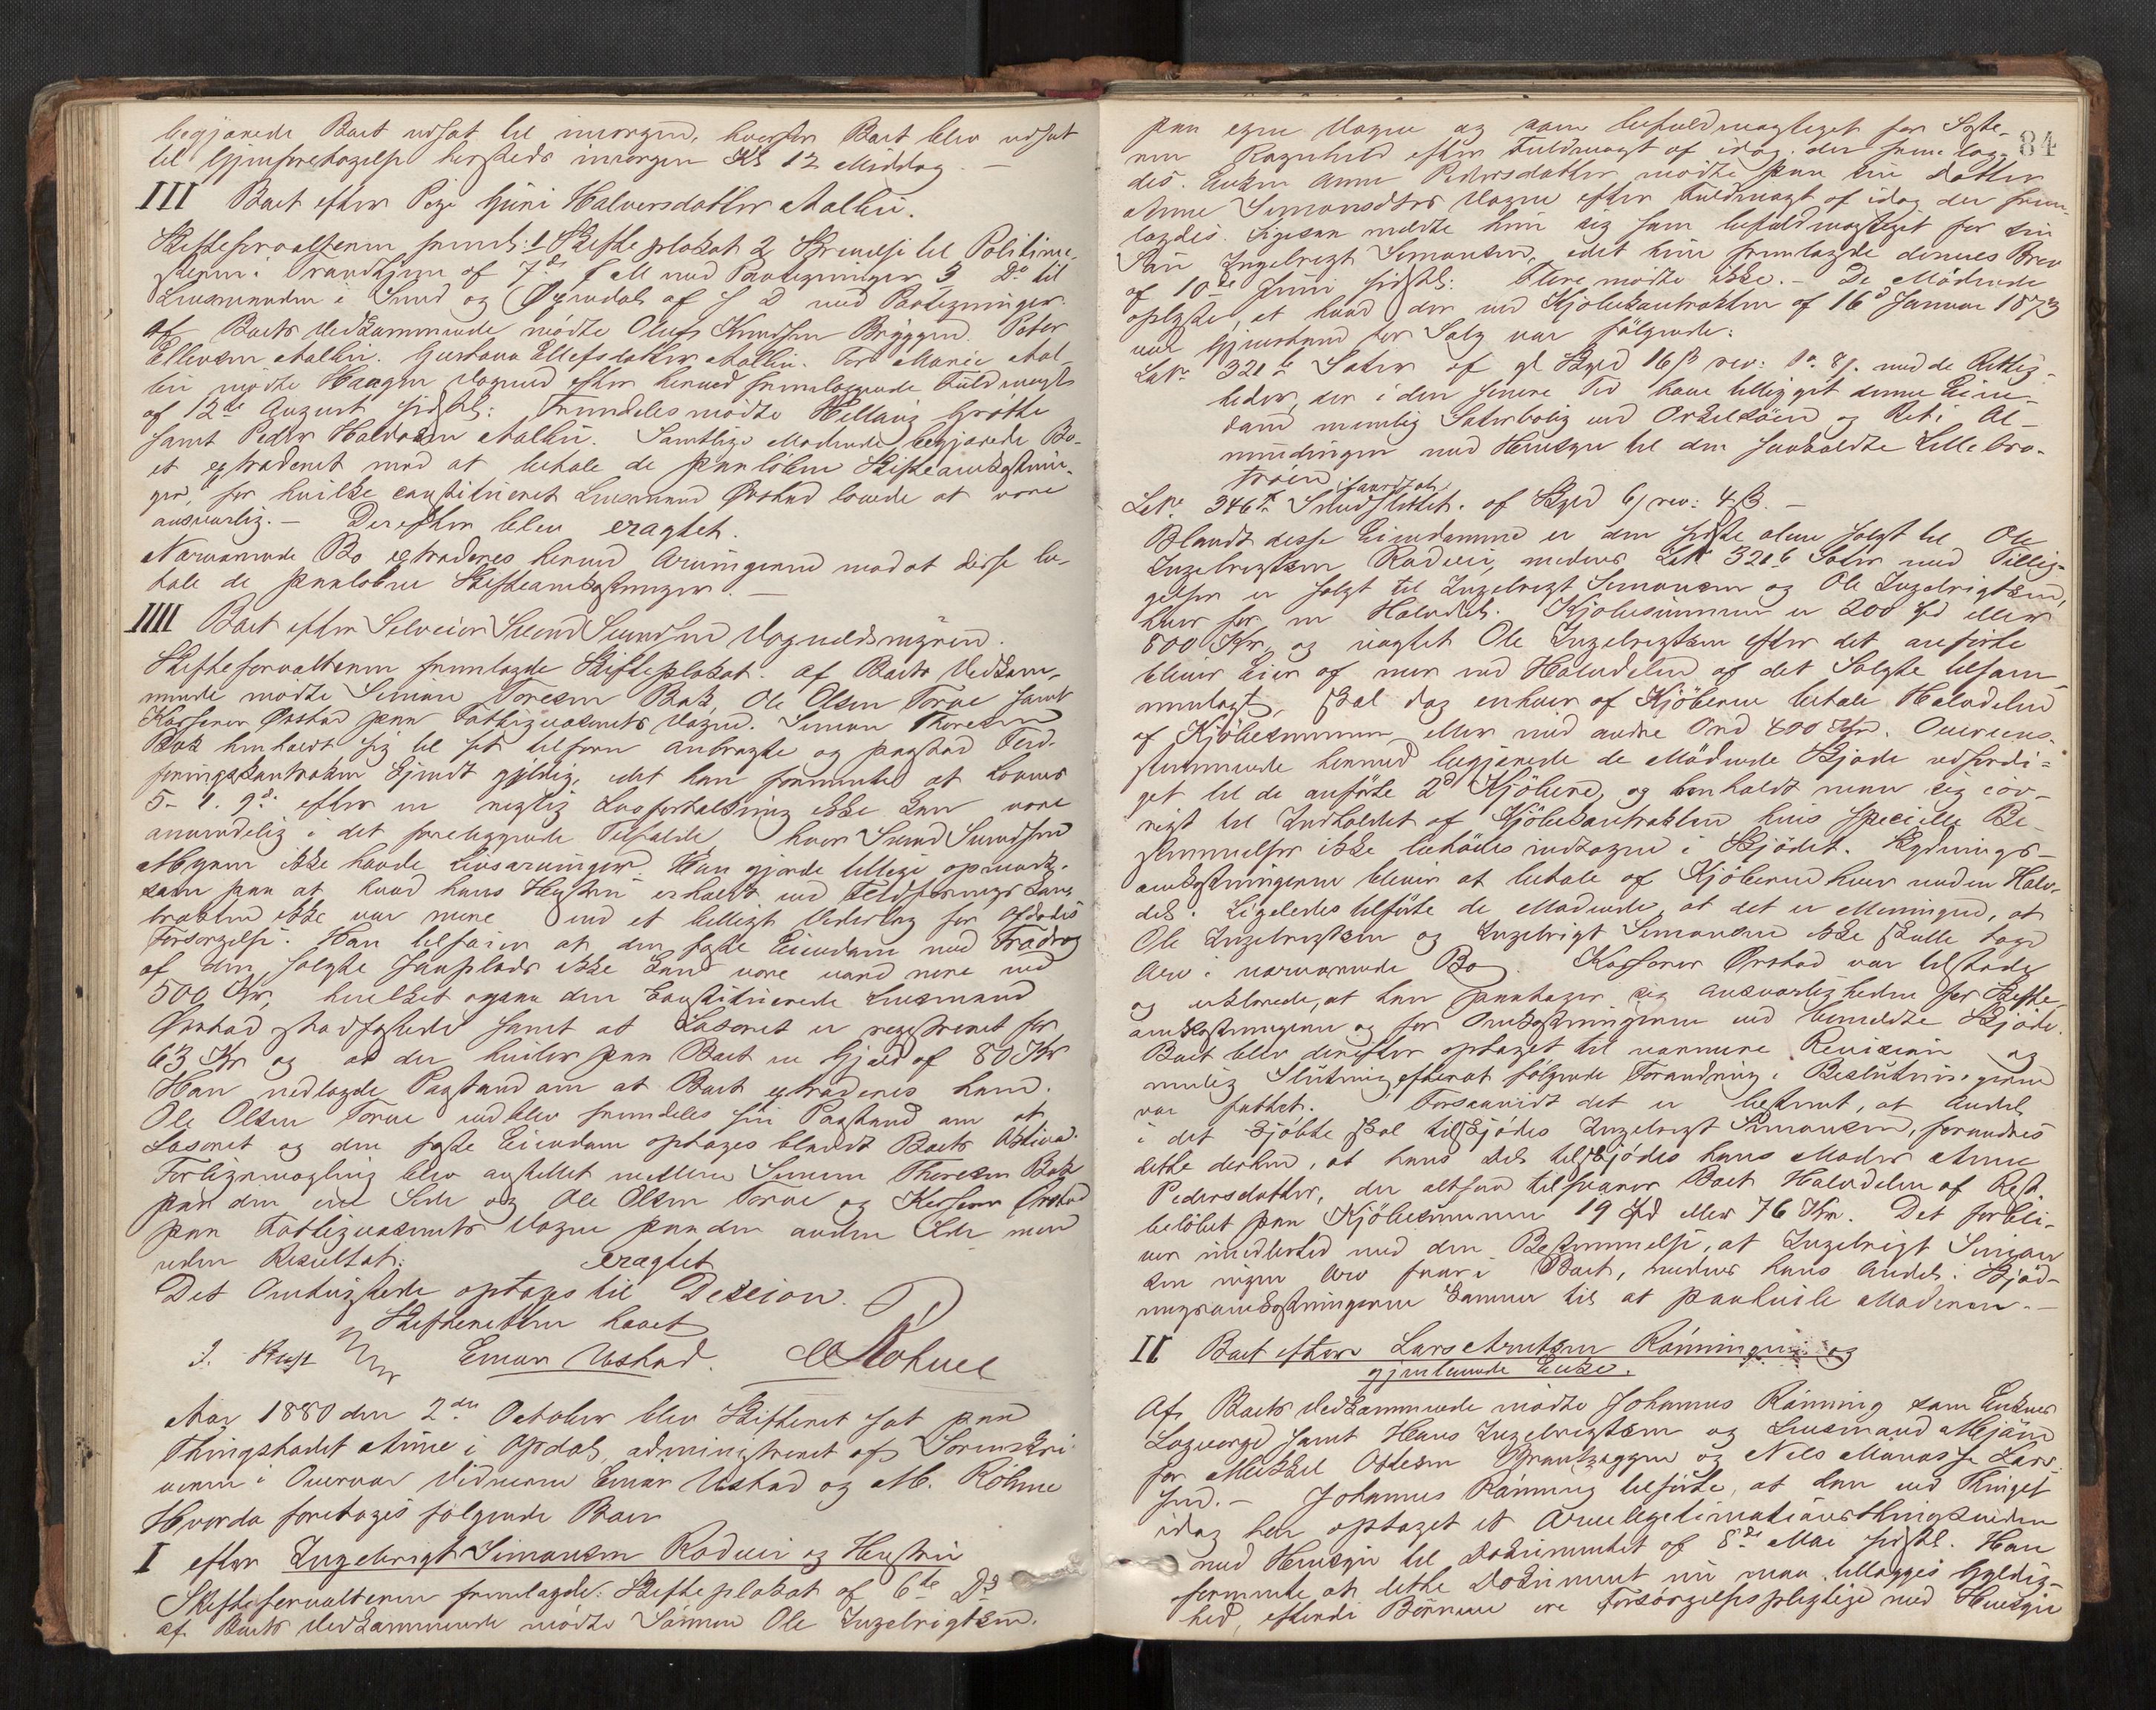 begjærede Boet udsat til imorgen, hvorfor Boet blev udsat
til Gjenforetagelse hersteds imorgen Kl 12 Middag. —
III Boet efter Pige Guri Halvorsdatter Aalbu.
Skifteforvalteren freml: 1 Skifteplakat 2 Skrivelse til Politime-
steren i Trondhjem af 7de f M med Paategninger 3 Do til
Lensmanden i Sund og Øxendal af s D med Paategninger.
Af Boets Vedkommende mødte Oluf Knudsen Bryggen. Peter
Ellevsen Aalbu. Gustava Ellefsdatter Aalbu. For Marie Aal-
bu mødte Haagen Vognild efter herved fremlæggende Fuldmagt
af 12te August sidstl: Fremdeles mødte Hellaug Grøtte
samt Peder Haldosen Aalbu. Samtlige Mødende begjærede Bo-
et extraderet mod at betale de paaløbne Skifteomkostnin-
ger, for hvilke constitueret Lensmand Ørstad lovede at være
ansvarlig. — Derefter blev eragtet.
Nærværende Bo extraderes herved Arvingerne mod at disse be-
tale de paaløbne Skifteomkostninger. —
IIII Boet efter Selveier Svend Svendsen Vognildsmyren.
Skifteforvalteren fremlagde Skifteplakat. Af Boets Vedkom-
mende mødte Simen Toresen Bak, Ole Olsen Torve samt
Kasserer Ørstad paa Fattigvæsenets Vegne. Simen Thoresen
Bak henholdt sig til sit tilforn anbragte og paastod Fød-
feringskontrakten kjendt gyldig, idet han formente at Lovens
5- 4. 9de efter en rigtig Lovfortolkning ikke kan være
anvendelig i det foreliggende Tilfælde, hvor Svend Svendsen
Myren ikke havde Livsarvinger. Han gjorde tillige opmærk-
som paa at hvad hans Hustru erholdt ved Fødføringskon-
trakten ikke var mere end et billigt Vederlag for Afdødes
Forsørgelse. Han tilføier at den faste Eiendom med Fradrag
af den solgte Jonplads ikke kan være værd mere end
500 Kr, hvilket ogsaa den Constituerede Lensmand
Ørstad stadfæstede samt at Løsøret er registreret for
63 Kr og at der hviler paa Boet en Gjæld af 80 Kr
Han nedlagde Paastand om at Boet extraderes ham.
Ole Olsen Torve vedblev fremdeles sin Paastand om at
Løsøret og den faste Eiendom optages blandt Boets Aktiva.
Forligsmægling blev anstillet mellem Simen Thoresen Bak
paa den ene Side og Ole Olsen Torve og Kasserer Ørstad
paa Fattigvæsenets Vegne paa den anden Side men
uden Resultat. eragtet
Det Omtvistede optages til Decision.
Skifteretten hævet
J. Rust Einar Ustad. M Røhme
Aar 1880 den 2den October blev Skifteret sat paa
Thingstedet Aune i Opdal, administreret af Sorenskri-
veren i Overvær Vidnerne Einar Ustad og M. Röhme
Hvorda foretages følgende Boer
I efter Ingebrigt Simonsen Rødvei og Hustru
Skifteforvalteren fremlagde: Skifteplakat af 6te Ds
af Boets Vedkommende mødte Sønnen Ole Ingebrigtsen.
84
paa egne Vegne og som befuldmægtiget for Syste-
ren Ragnhild efter Fuldmagt af idag der fremlag-
des. Enken Anne Pedersdatter mødte paa sin Datter
Anne Simonsdtrs Vegne efter Fuldmagt af idag der frem-
lagdes. Ligesom meldte hun sig som befuldmægtiget for sin
Søn Ingebrigt Simonsen, idet hun fremlagde dennes Brev
af 10de Juni sidstl: Flere mødte ikke. — De Mødende
oplyste, at hvad der ved Kjøbekontrakten af 16de Januar 1873
var Gjenstand for Salg var følgende:
LNr 321 b Sæter af gl Skyld 16 ß rev: 1 ort 8 ß. med de Rettig-
heder, der i den senere Tid have tilligget denne Eien-
dom nemlig Sæterbolig ved Orkelsøen og Ret i Al-
mindingen med Hensyn til den saakaldte Lillebro-
trøen,
LNr. 346 Sundslettet. af Skyld 6 ß rev: 4 ß. —
Blandt disse Eiendomme er den sidste alene solgt til Ole
Ingebrigtsen Rødvei, medens LNr 321 b Sæter med Tillig-
gelser er solgt til Ingebrigt Simonsen og Ole Ingebrigtsen,
hver for en Halvdel. Kjøbesummen er 200 Spd eller
800 Kr, og uagtet Ole Ingebrigtsen efter det anførte
bliver Eier af mer end Halvdelen af det Solgte tilsam-
menlagt, skal dog enhver af Kjøberne betale Halvdelen
af Kjøbesummen eller med andre Ord 400 Kr. Overens-
stemmende hermed begjærede de Mødende Skjøde udferdi-
get til de anførte 2de Kjøbere, og henholdt man sig iøv-
rigt til Indholdet af Kjøbekontrakten hvis specielle Be-
stemmelser ikke behøves indtagne i Skjødet. Skjødnings-
omkostningerne bliver at betale af Kjøberne hver med en Halv-
del. Ligeledes tilførte de Mødende, at det er Meningen, at
Ole Ingebrigtsen og Ingebrigt Simonsen ikke skulle tage
Arv i nærværende Bo. Kasserer Ørstad var tilstede
og erklærede, at han paatager sig Ansvarligheden for Skifte-
omkostningerne og for Omkostningerne ved bemeldte Skjøde.
Boet blev derefter optaget til nærmere Revision og
mulig Slutning, efterat følgende Forandring i Beslutningerne
var fattet. Forsaavidt det er bestemt, at Andel
i det kjøbte skal tilskjødes Ingebrigt Simonsen, forandres
dette derhen, at hans Del tilskjødes hans Moder Anne
Pedersdatter, der altsaa tilsvarer Boet Halvdelen af Rest-
beløbet paa Kjøbesummen 19 Spd eller 76 Kr. Det forbli-
ver imidlertid ved den Bestemmelse, at Ingebrigt Simon-
sen ingen Arv faar i Boet, medens hans Andel i Skjød-
ningsomkostningerne kommer til at paahvile Moderen. —
II Boet efter Lars Arntsen Rønningen og
gjenlevende Enke.
Af Boets Vedkommende mødte Johannes Rønning som Enkens
Lagværge samt Hans Ingebrigtsen og Lensmand Mjøen
for Mikkel Ottesen og Nils Manasse Lar-
sen. — Johannes Rønning tilførte, at han ved Thinget
idag har optaget et Arvelegitimationsthingsvidne
med Hensyn til Dokumentet af 8de Mai sidstl. Han
formente at dette Dokument nu maa tillægges Gyldig-
hed, efterdi Børnene ere Forsørgelsespligtige med Hensyn